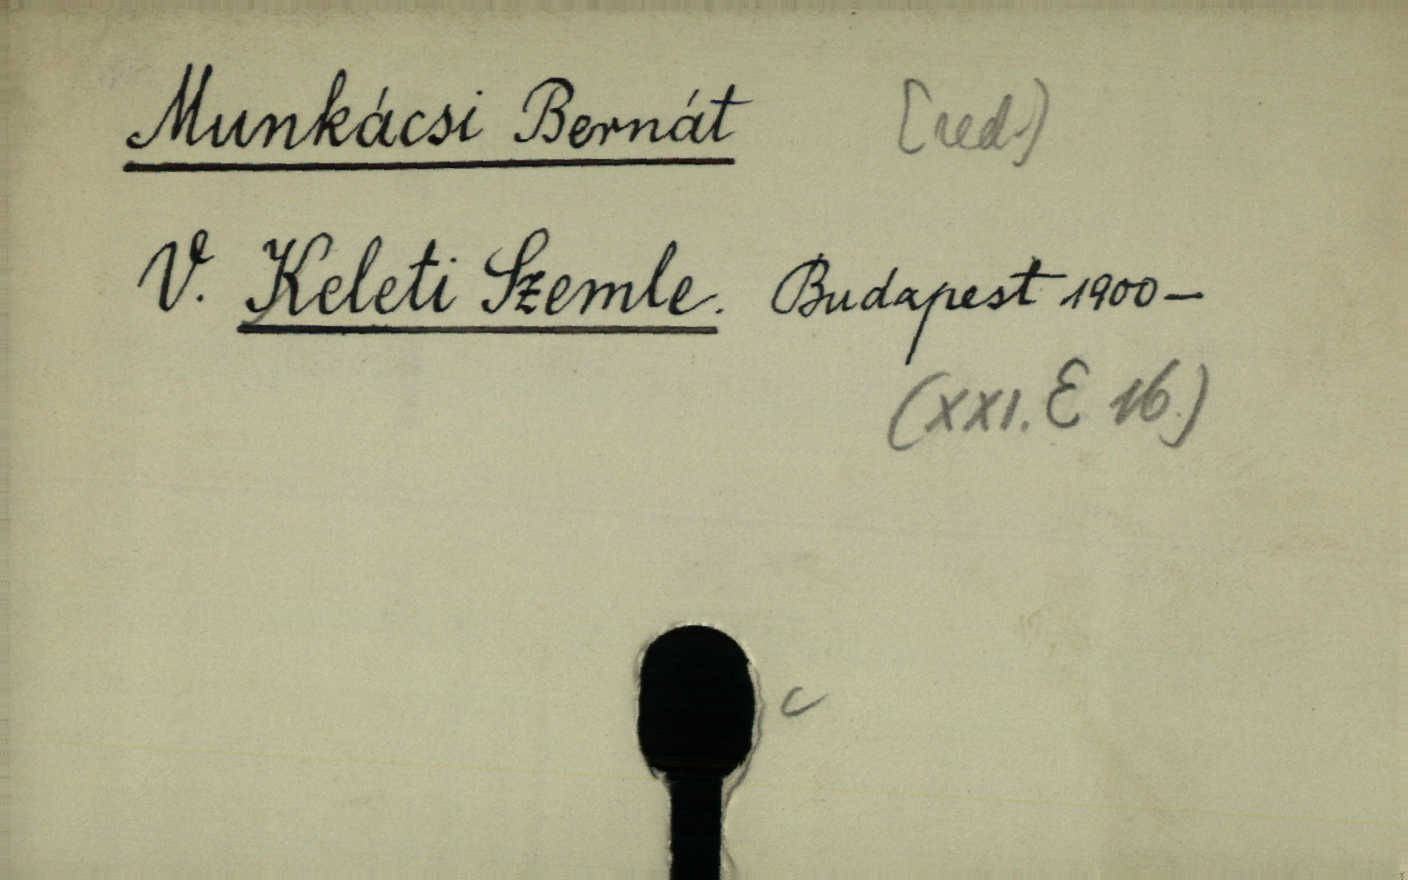 Munkácsi Bernát [red.)
V. Keleti Szemle. Budapest 1900—
(XXI. E 16.)
c